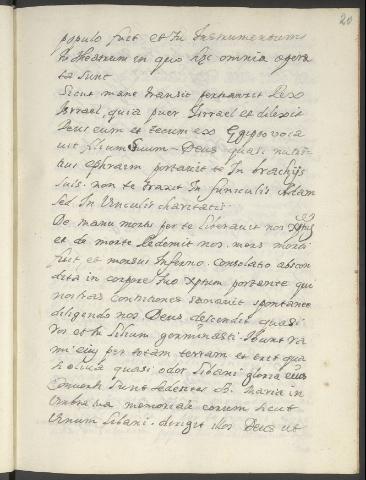 20
populo fuit et tu Instrumentum
et theatrum in quo hæc omnia opera
ta sunt
Sicut mane transit pertransit Rex
Israel, quia puer Israel et dilexit
Deus eum et tecum ex Egipto voca
uit filium suum - Deus quasi nutri-
tius ephraim portauit te In brachijs
suis. non te traxit In funiculis Adam
sed In Vinculis charitatis.
De manu mortis per te liberauit nos Xptus
et de morte Redemit nos. mors morti
fuit et morsus Inferno. Consolatio abscon
dita in corpore tuo Xptum portante qui
nostras Contritiones sanauit spontanee
diligendo nos Deus descendit quasi
ros et tu lilium germinasti Ibunt ra
mi eius per totam terram et erit qua
si oliua quasi odor libani gloria eius
Conuenti sunt sedentes B. Maria in
Vmbra tua memoriale eorum sicut
Vinum libani. diriget illos Deus ut